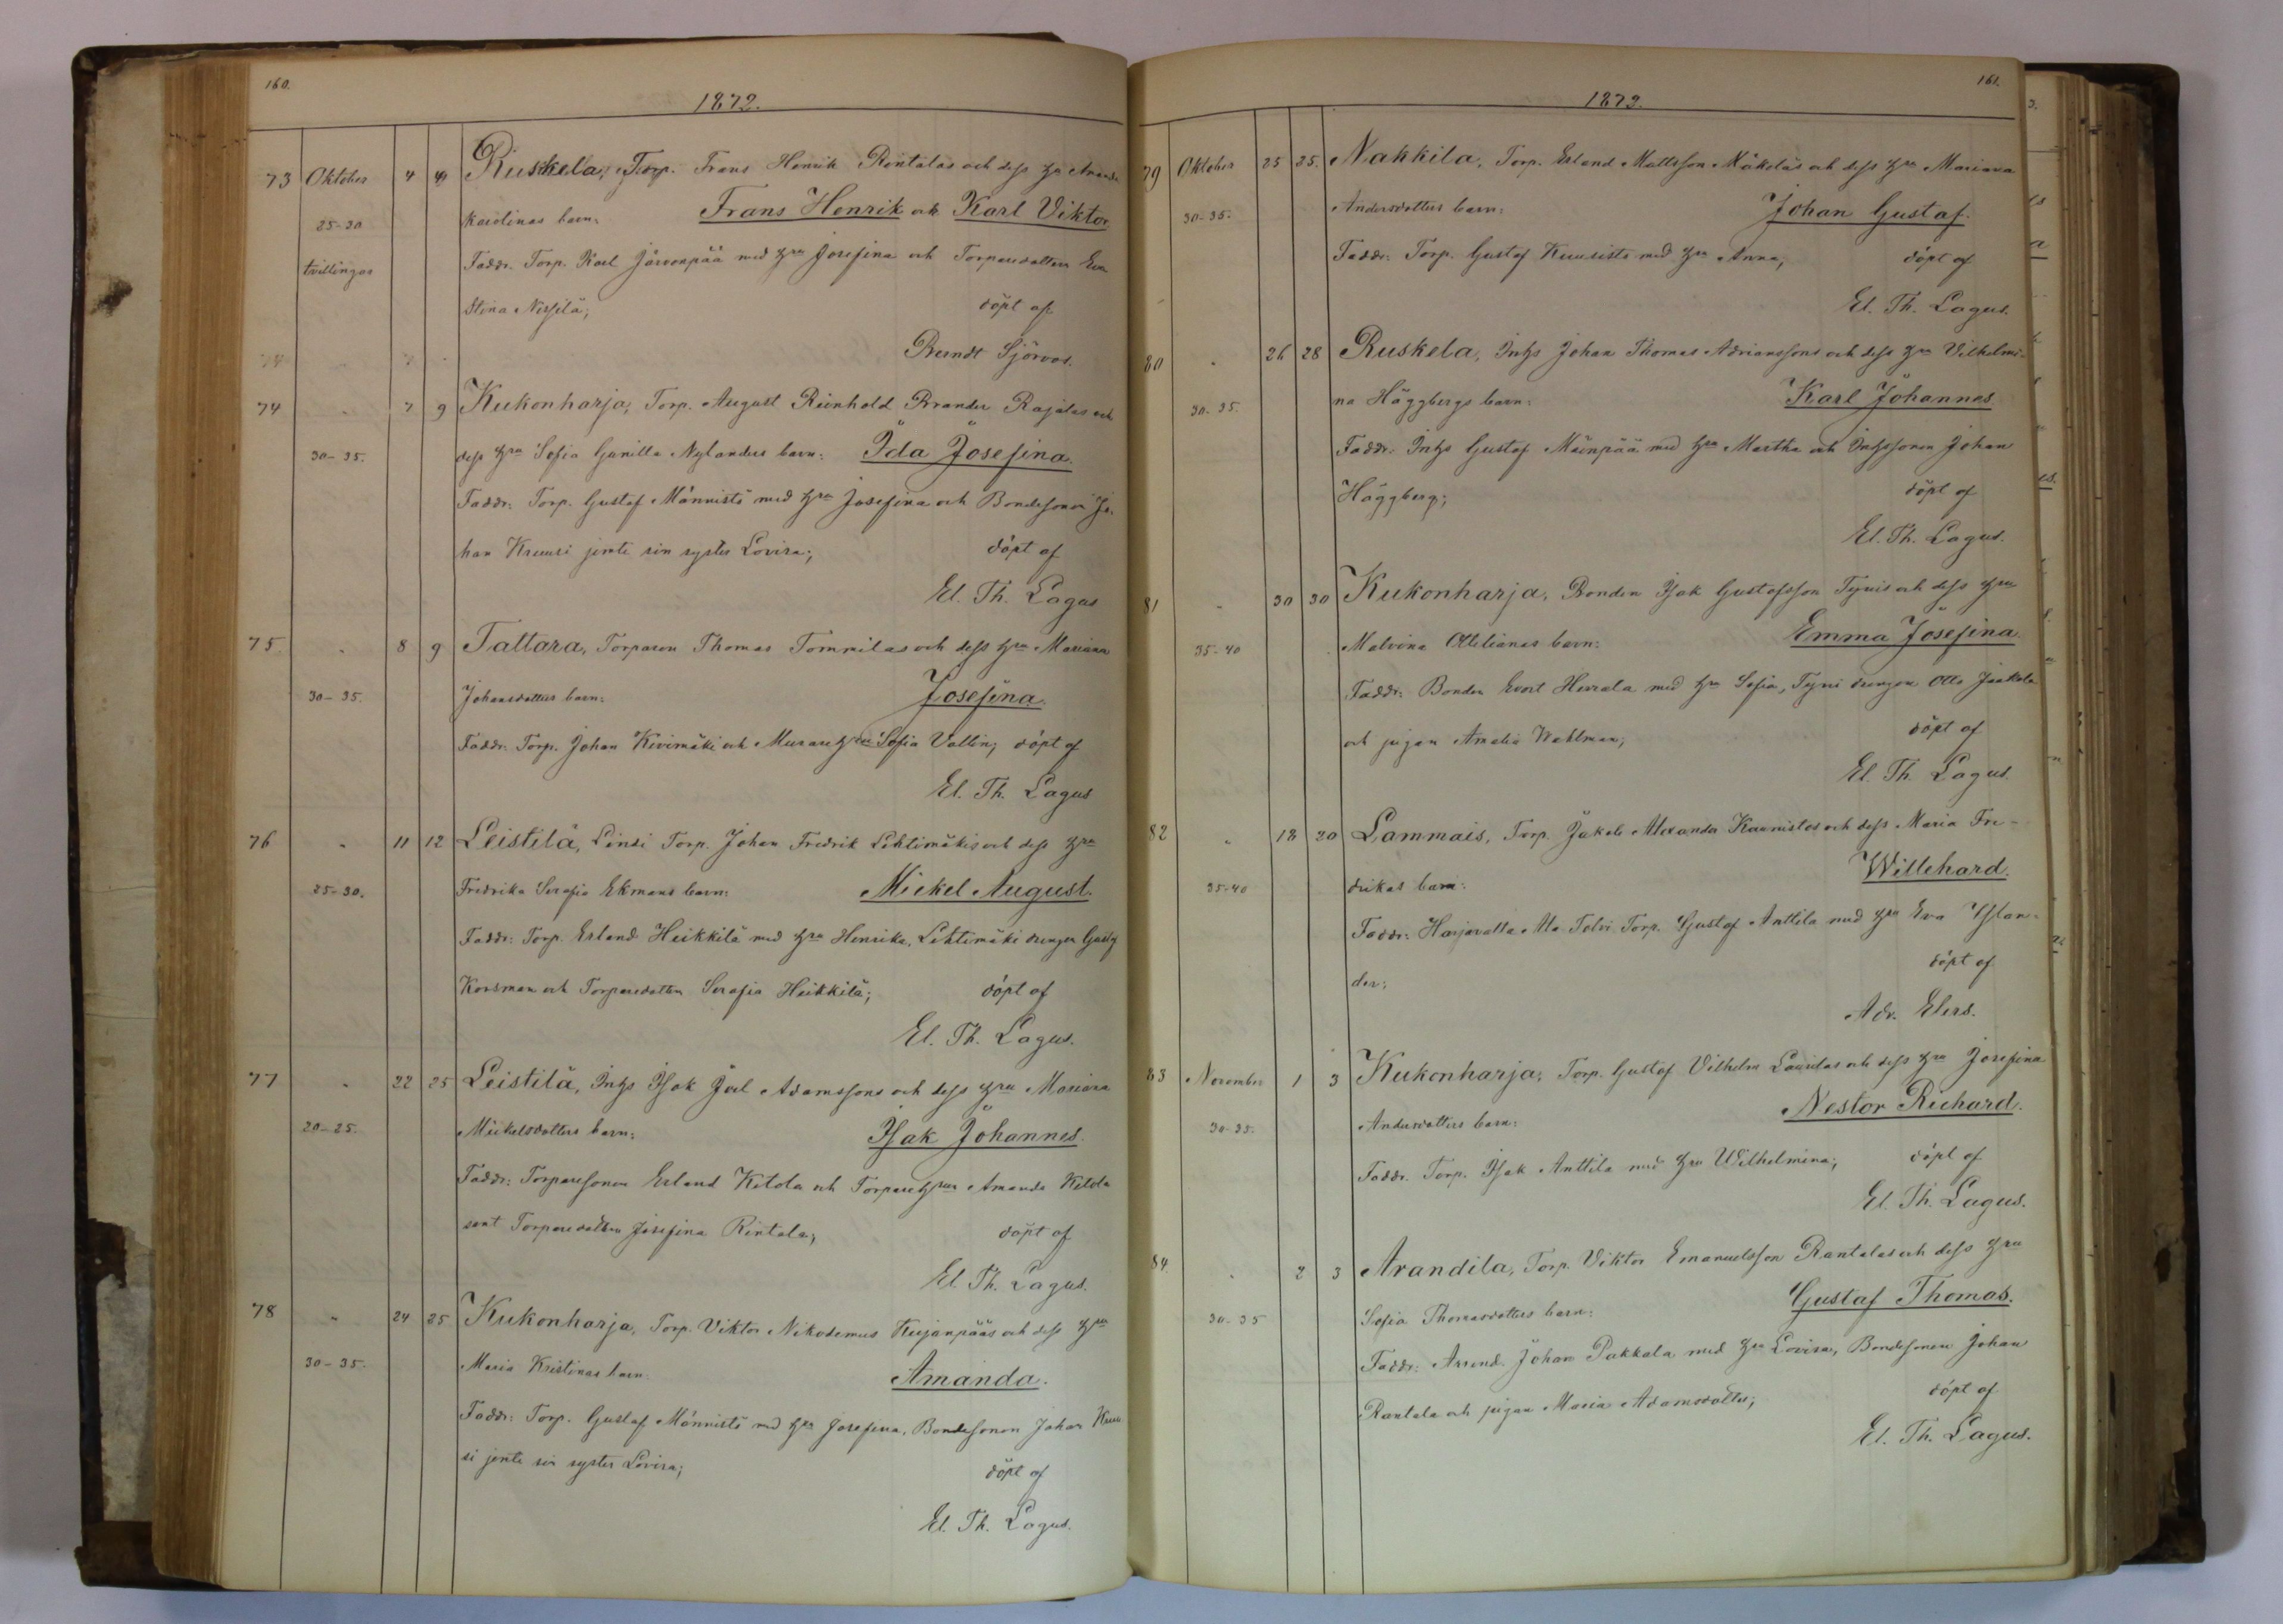 160.
1872.
73 Oktober 4 4 Ruskela, Torp. Frans Henrik Rantalas och dess hu Amanda
25-30 Karolinas barn: Frans Henrik och Karl Viktor
tvillingar Faddr. Torp. Karl Järvenpää med hru Josefina och Torparedottern Eva
Stina Nissilä; döpt af
Berndt Sjöroos.
74 " 7 9 Kukonharja, Torp. August Reinhold Brander Rajalas och
30-35. dess hru Sofia Gunilla Nylanders barn: Ida Josefina.
Faddr: Torp. Gustaf Männistö med hru Josefina och Bondesonen Jo-
han Kruusi jemte sin syster Lovisa; döpt af
El. Th. Lagus
75 " 8 9 Tattara, Torparen Thomas Tommilas och dess hru Mariana
30-35. Johansdotters barn: Josefina.
Faddr: Torp. Johan Kivimäki och Murarehrun Sofia Vallin; döpt af
El. Th. Lagus
76 " 11 12 Leistilä, Linsi Torp. Johan Fredrik Lehtimäkis och dess hru
25-30. Fredrika Serafia Ekmans barn: Mickel August.
Faddr: Torp. Erland Heikkilä med hru Henrika, Lehtimäki drengen Gustaf
Korsman och Torparedottern Serafia Heikkilä; döpt af
El. Th. Lagus.
77 " 22 25 Leistilä, Inhs Isak Joel Adamssons och dess hru Mariana
20-25. Mickelsdotters barn: Isak Johannes.
Faddr: Torparesonen Erland Ketola och Torparehrun Amanda Ketola
samt Torparedottern Josefina Rintala; döpt af
El. Th. Lagus.
78 " 24 25 Kukonharja, Torp. Viktor Nikodemus Kujanpääs och dess hru
30-35. Maria Kristinas barn: Amanda.
Faddr: Torp. Gustaf Männistö med hru Josefina, Bondesonen Johan Kruu
si jemte sin syster Lovisa; döpt af
El. Th. Lagus.
161.
1872.
79 Oktober 25 25. Nakkila, Torp. Erland Mattsson Mäkeläs och dess hru Mariana
30-35. Andersdotters barn: Johan Gustaf.
Faddr: Torp. Gustaf Kuusisto med hru Anna; döpt af
El. Th. Lagus.
80 " 26 28 Ruskela, Inhs Johan Thomas Adrianssons och dess hru Vilhelmi-
30-35. na Häggbergs barn: Karl Johannes
Faddr: Inhs Gustaf Mäenpää med hru Martha och Inhssonen Johan
Häggberg; döpt af
El. Th. Lagus.
81 " 30 30 Kukonharja, Bonden Isak Gustafsson Tyris och dess hru
35-40 Malvina Ottilianas barn: Emma Josefina.
Faddr: Bonden Evert Herrala med hru Sofia, Tyri drengen Otto Jaakola
och pigan Amalia Wahlman; döpt af
El. Th. Lagus.
82 " 18 20 Lammais, Torp. Jakob Alexander Kaunistos och dess Maria Fre-
35-40 drikas barn: Willehard.
Faddr: Harjavalta Ala Tolvi Torp. Gustaf Anttila med hru Eva Yslan-
der; döpt af
Adr. Elers.
83 November 1 3 Kukonharja; Torp. Gustaf Vilhelm Laurilas och dess hru Josefina
30-35. Andersdotters barn: Nestor Richard.
Faddr. Torp. Isak Anttila med hru Wilhelmina; döpt af
El. Th. Lagus.
84. " 2 3 Arandila, Torp. Viktor Emanuelsson Rantalas och dess hru
30-35 Sofia Thomasdotters barn: Gustaf Thomas.
Faddr: Arrend. Johan Pakkala med hru Lovisa, Bondesonen Johan
Rantala och pigan Maria Adamsdotter; döpt af
El. Th. Lagus.